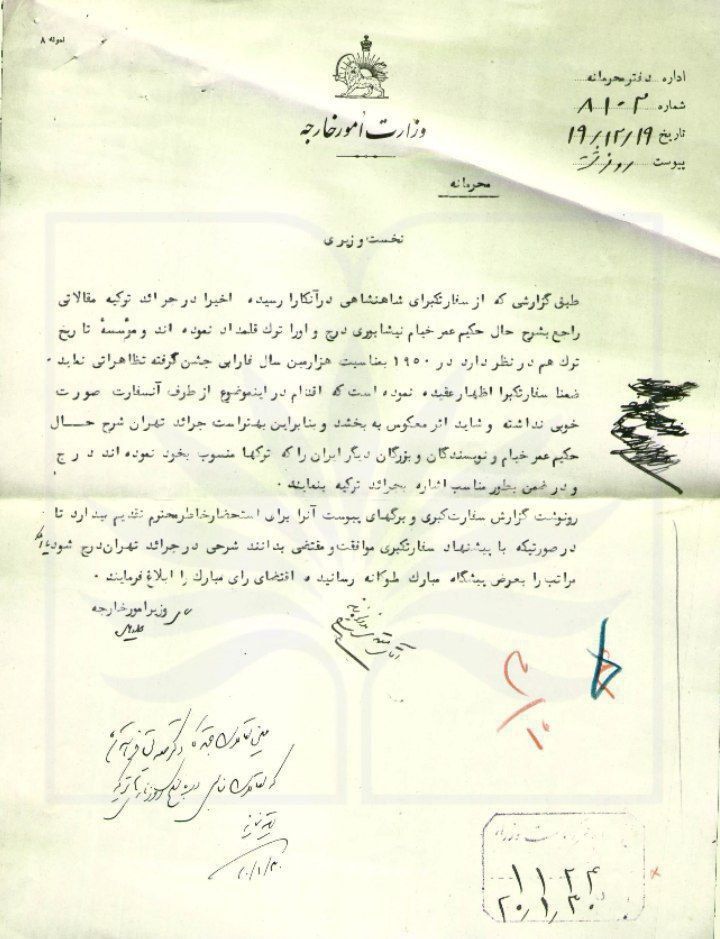 نمونه ۸
اداره دفتر محرمانه
شماره ۸۱۰۳
تاریخ ۱۹/۱۲/۱۹
پیوست
وزارت امور خارجه
محرمانه
نخست وزیری
طبق گزارشی که از سفارتکبرای شاهنشاهی درآنکارا رسیده اخیرا در جرائد ترکیه مقالاتی
راجع بشرح حال حکیم عمر خیام نیشابوری درج و اورا ترک قلمداد نموده اند و مؤسسهٔ تاریخ
ترک هم در نظر دارد در ۱۹۵۰ بمناسبت هزارمین سال فارابی جشن گرفته تظاهراتی نماید .
ضمنا سفارتکبرا اظهار عقیده نموده است که اقدام در اینموضوع از طرف آنسفارت صورت
خوبی نداشته و شاید اثر معکوس به بخشد و بنابراین بهتر است جرائد تهران شرح حال
حکیم عمر خیام و نویسندگان و بزرگان دیگر ایران را که ترکها منسوب بخود نموده اند درج
و در ضمن بطور مناسب اشاره بجرائد ترکیه بنمایند .
رونوشت گزارش سفارت کبری و برگهای پیوست آنرا برای استحضار خاطر محترم تقدیم میدارد تا
در صورتیکه با پیشنهاد سفارتکبری موافقت و مقتضی بدانند شرحی در جرائد تهران درج شود یا آنکه
مراتب را بعرض پیشگاه مبارک ملوکانه رسانیده اقتضای رای مبارک را ابلاغ فرمایند .
وزیر امور خارجه
۲۰/۱/۳۰
۱۱۲۴
۲۰/۱/۳۰